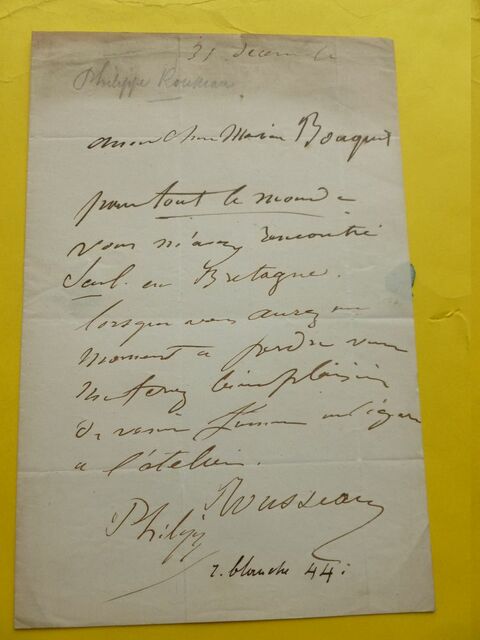 31 décembre
Philippe Rousseau
mon cher Monsieur Bouquet
pour tout le monde
vous m'avez rencontré
Seul en Bretagne.
lorsque vous aurez un
moment a perdre vous
me ferez bien plaisir
de venir fumer un cigare
a l'atelier.
Philippe Rousseau
r. blanche 44